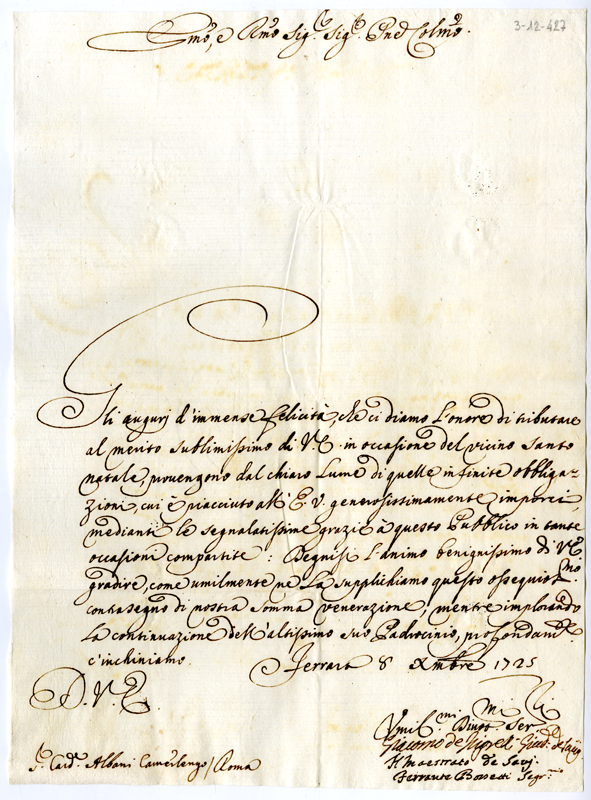 3-12-427
Emo, e Rmo Sig.r Sig.r Pne Colmo.
Gli augurj d'immense felicità, che ci diamo l'onore di tributare
al merito sublimissimo di V.E. in occasione del vicino santo
natale, provengono dal chiaro lume di quelle infinite obbliga-
zioni, cui è piacciuto all'E.V. generosissimamente imporci,
mediante le segnalatissime grazie à questo Pubblico in tante
occasioni compartite: Degnisi l'animo benignissimo di V.E.
gradire, come umilmente ne La supplichiamo questo ossequios.mo
contrasegno di nostra somma venerazione, mentre implorando
la continuazione dell'altissimo suo Padrocinio, profondam.te
c'inchiniamo. Ferrara 8 Xmbre 1725
D. V. E.
Umil.mi Divot.mi Ser.li
Giacomo de Giud.e de Savj
Il Maestrato de Savj.
Ferrante Segr.
S.r Card.e Albani Camerlengo / Roma